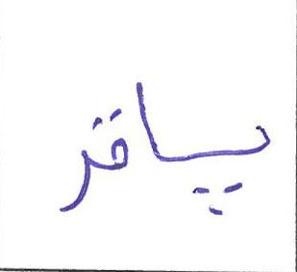 پاقر